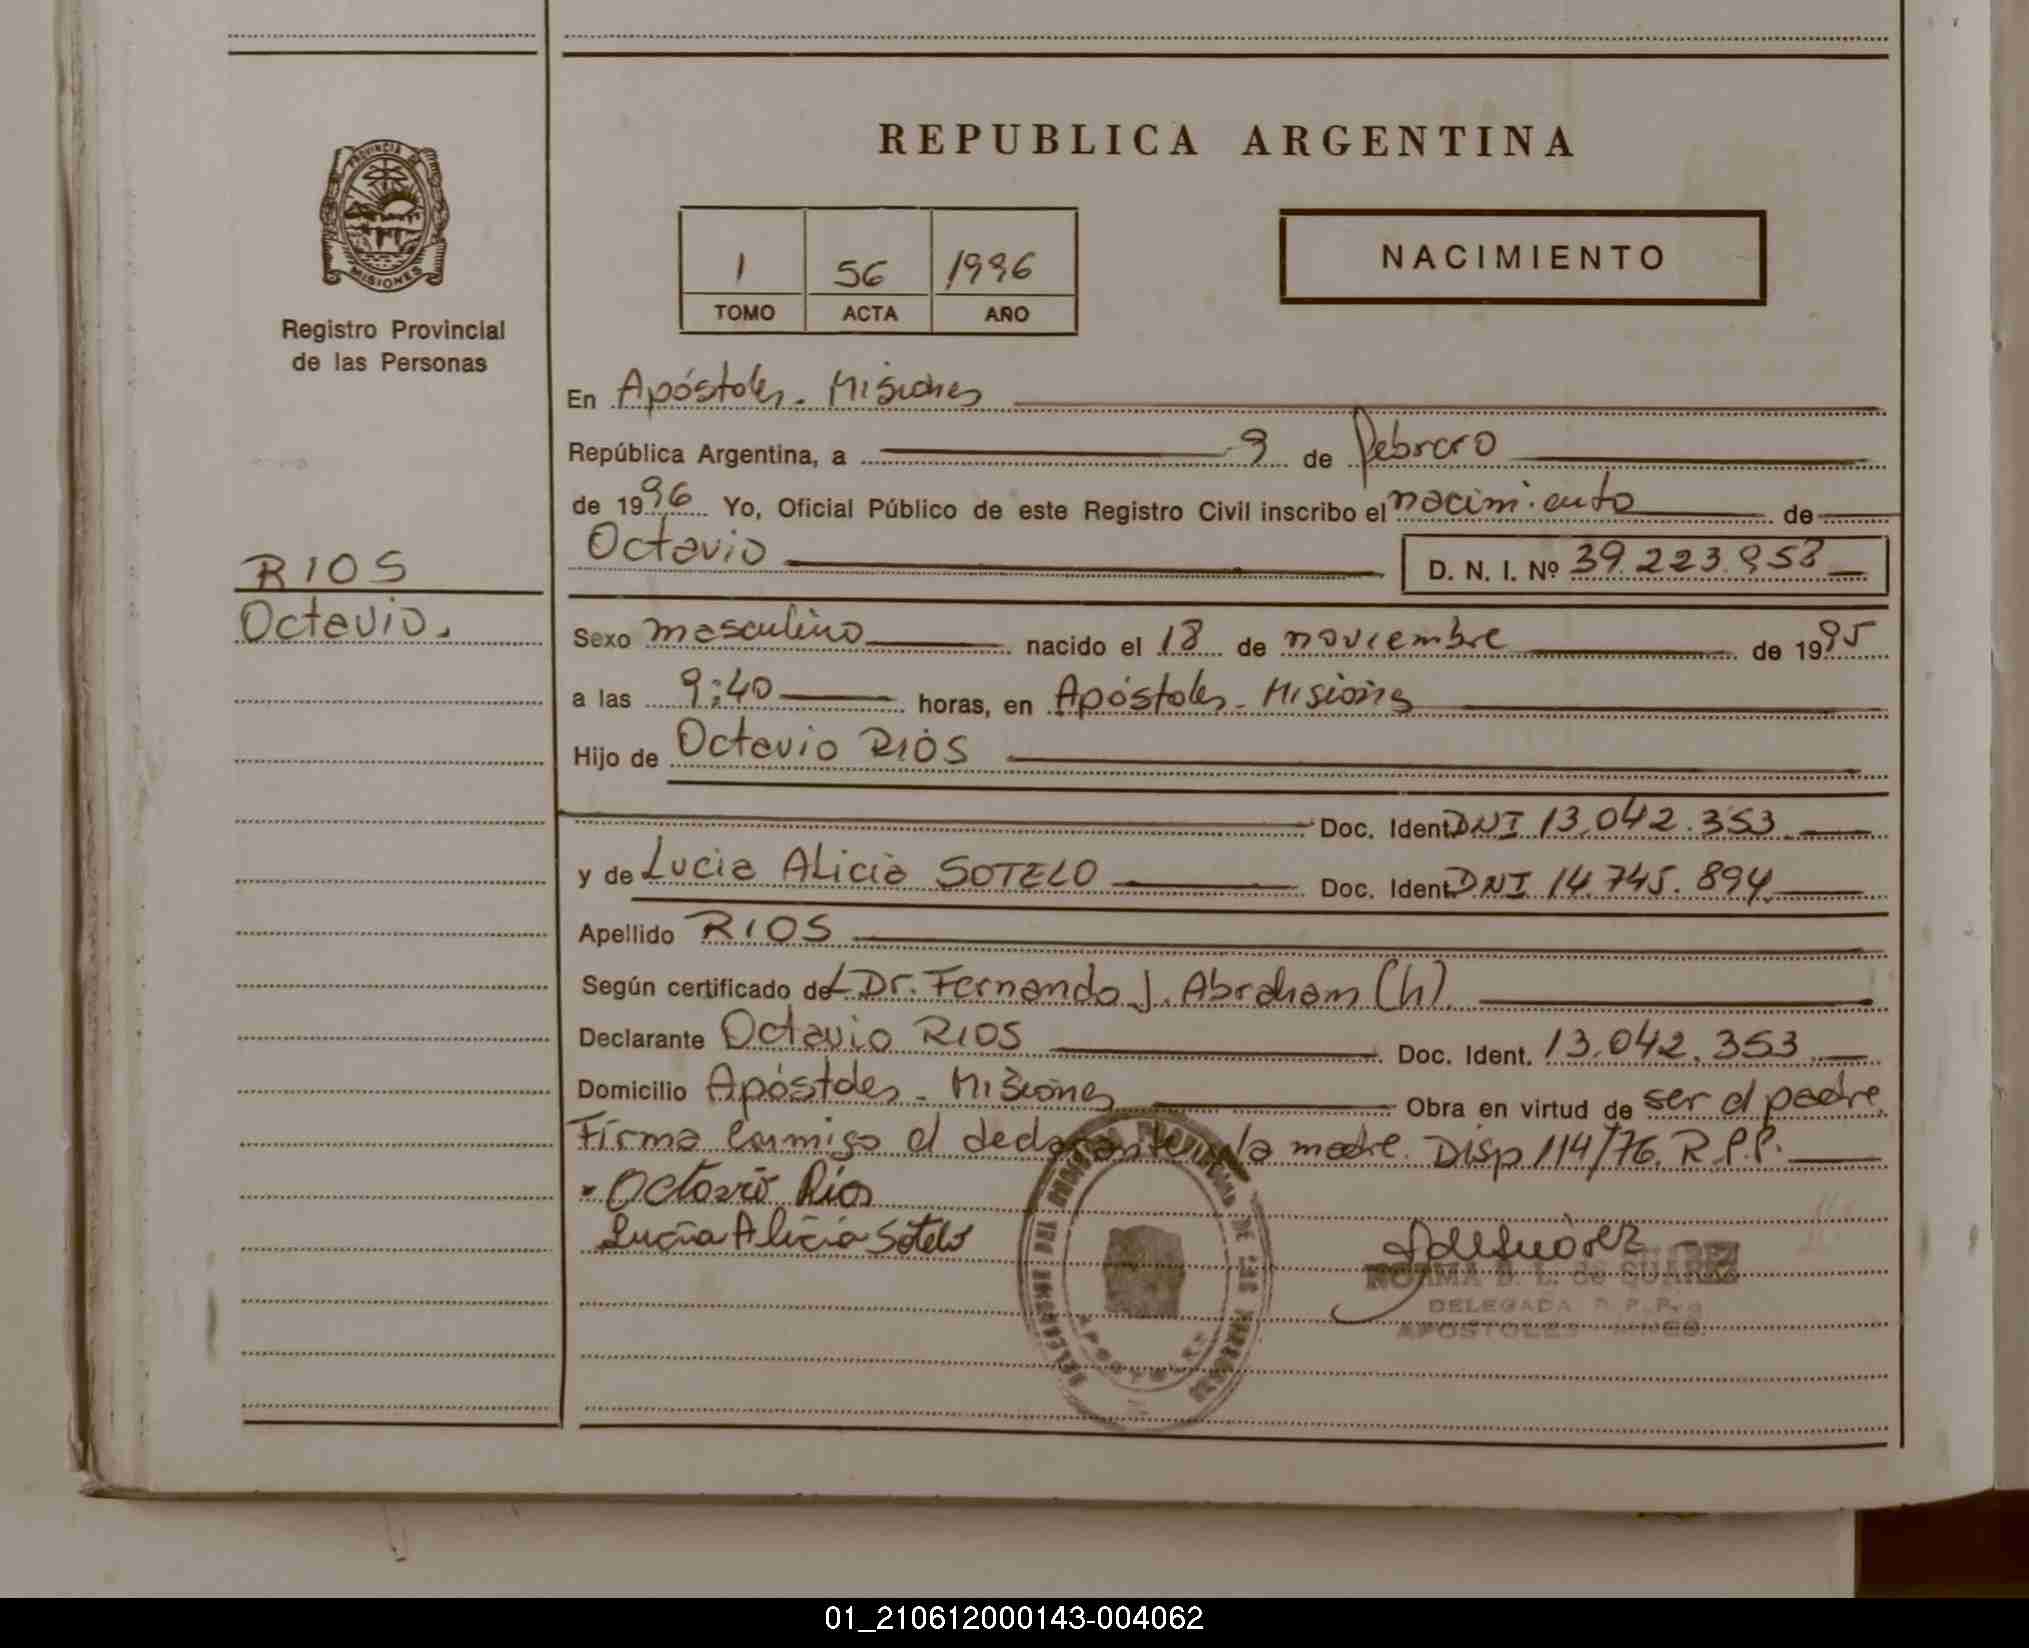 REPUBLICA ARGENTINA
PROVINCIA DE
MISIONES
Registro Provincial
de las Personas
1 56 1996
TOMO ACTA AÑO
NACIMIENTO
En Apóstoles - Misiones
República Argentina, a 9 de febrero
de 1996 Yo, Oficial Público de este Registro Civil inscribo el nacimiento de
Octavio D. N. I. Nº 39.223.958
RIOS
Octavio.
Sexo masculino nacido el 18 de noviembre de 1995
a las 9:40 horas, en Apóstoles - Misiones
Hijo de Octavio RIOS
Doc. Ident. DNI 13.042.353
y de Lucia Alicia SOTELO Doc. Ident. DNI 14.745.894
Apellido RIOS
Según certificado del Dr. Fernando J. Abraham (h)
Declarante Octavio RIOS Doc. Ident. 13.042.353
Domicilio Apóstoles - Misiones Obra en virtud de ser el padre.
Firma conmigo el declarante y la madre. Disp 114/76. R.P.P.
Octavio Ríos
Lucia Alicia Sotelo
NORMA B. L. de SUAREZ
DELEGADA R.P.P.
APOSTOLES
01_210612000143-004062